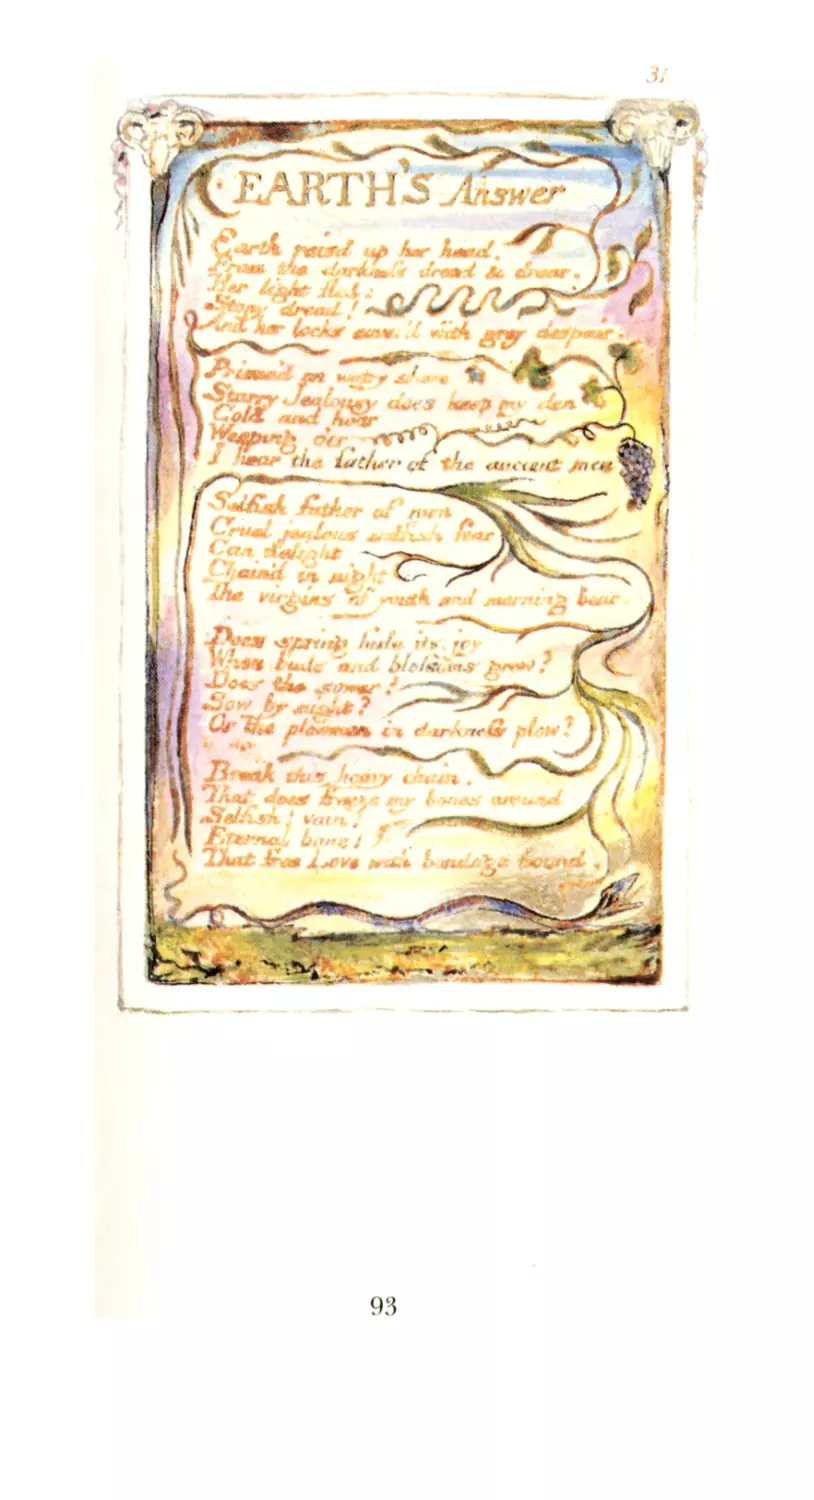 31
EARTH'S Answer
Earth rais'd up her head,
From the darkneſs dread & drear.
Her light fled:
Stony dread!
And her locks cover'd with grey despair.
Prison'd on watry shore
Starry Jealousy does keep my den
Cold and hoar
Weeping o'er
I hear the father of the ancient men
Selfish father of men
Cruel jealous selfish fear
Can delight
Chain'd in night
The virgins of youth and morning bear.
Does spring hide its joy
When buds and bloſsoms grow?
Does the sower?
Sow by night?
Or the plowman in darkneſs plow?
Break this heavy chain.
That does freeze my bones around
Selfish! vain!
Eternal bane!
That free Love with bondage bound.
93